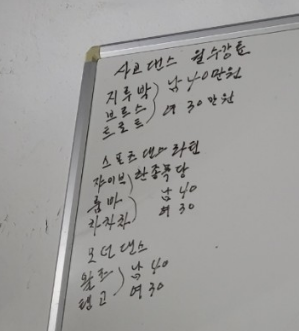 사교댄스 월수강료
지루박 ) 남 40만원
브르스
트로트 여 30만원
스포츠댄스 라틴
자이브 ) 한종목당
룸바 남 40
차차차 여 30
모던댄스
왈츠 ) 남 40
탱고 여 30